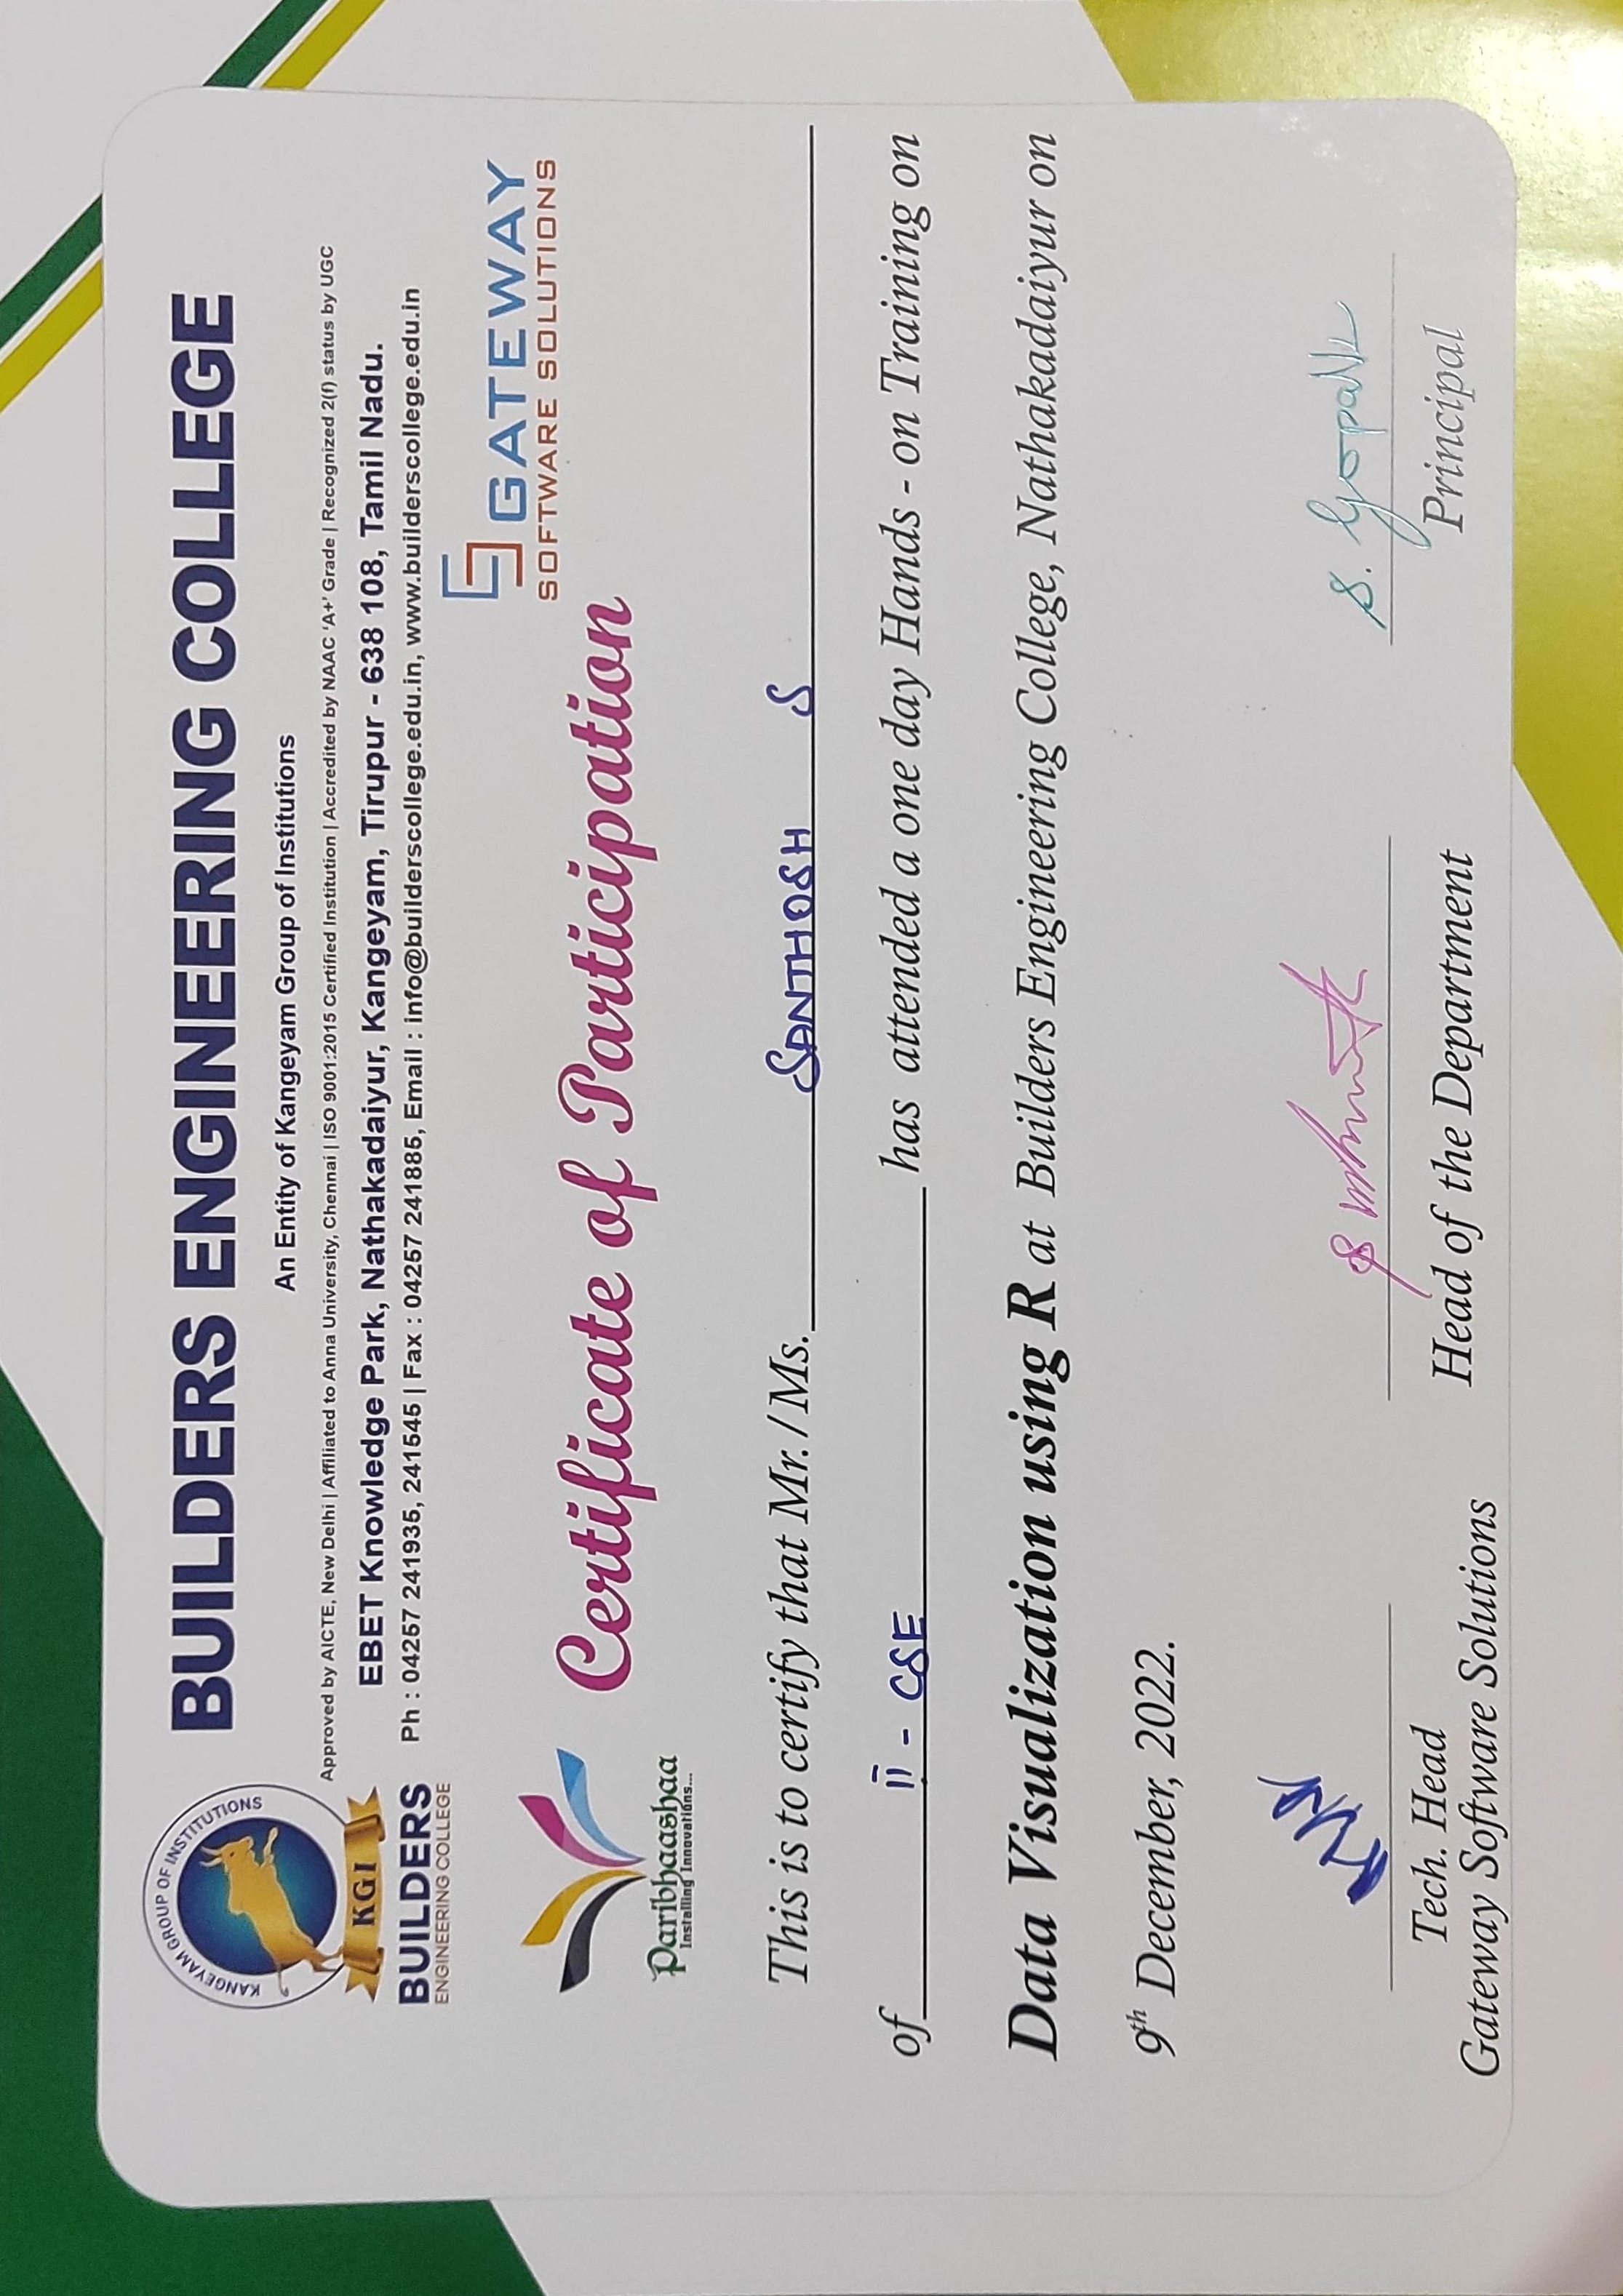 KANGEYAM GROUP OF INSTITUTIONS
KGI
BUILDERS
ENGINEERING COLLEGE
BUILDERS ENGINEERING COLLEGE
An Entity of Kangeyam Group of Institutions
Approved by AICTE, New Delhi | Affiliated to Anna University, Chennai | ISO 9001:2015 Certified Institution | Accredited by NAAC ‘A+’ Grade | Recognized 2(f) status by UGC
EBET Knowledge Park, Nathakadaiyur, Kangeyam, Tirupur - 638 108, Tamil Nadu.
Ph : 04257 241935, 241545 | Fax : 04257 241885, Email : info@builderscollege.edu.in, www.builderscollege.edu.in
GATEWAY
SOFTWARE SOLUTIONS
Paribhaashaa
Installing Innovations...
Certificate of Participation
This is to certify that Mr. / Ms. SANTHOSH S
of II - CSE has attended a one day Hands - on Training on
Data Visualization using R at Builders Engineering College, Nathakadaiyur on
9th December, 2022.
Tech. Head
Gateway Software Solutions
Head of the Department
Principal